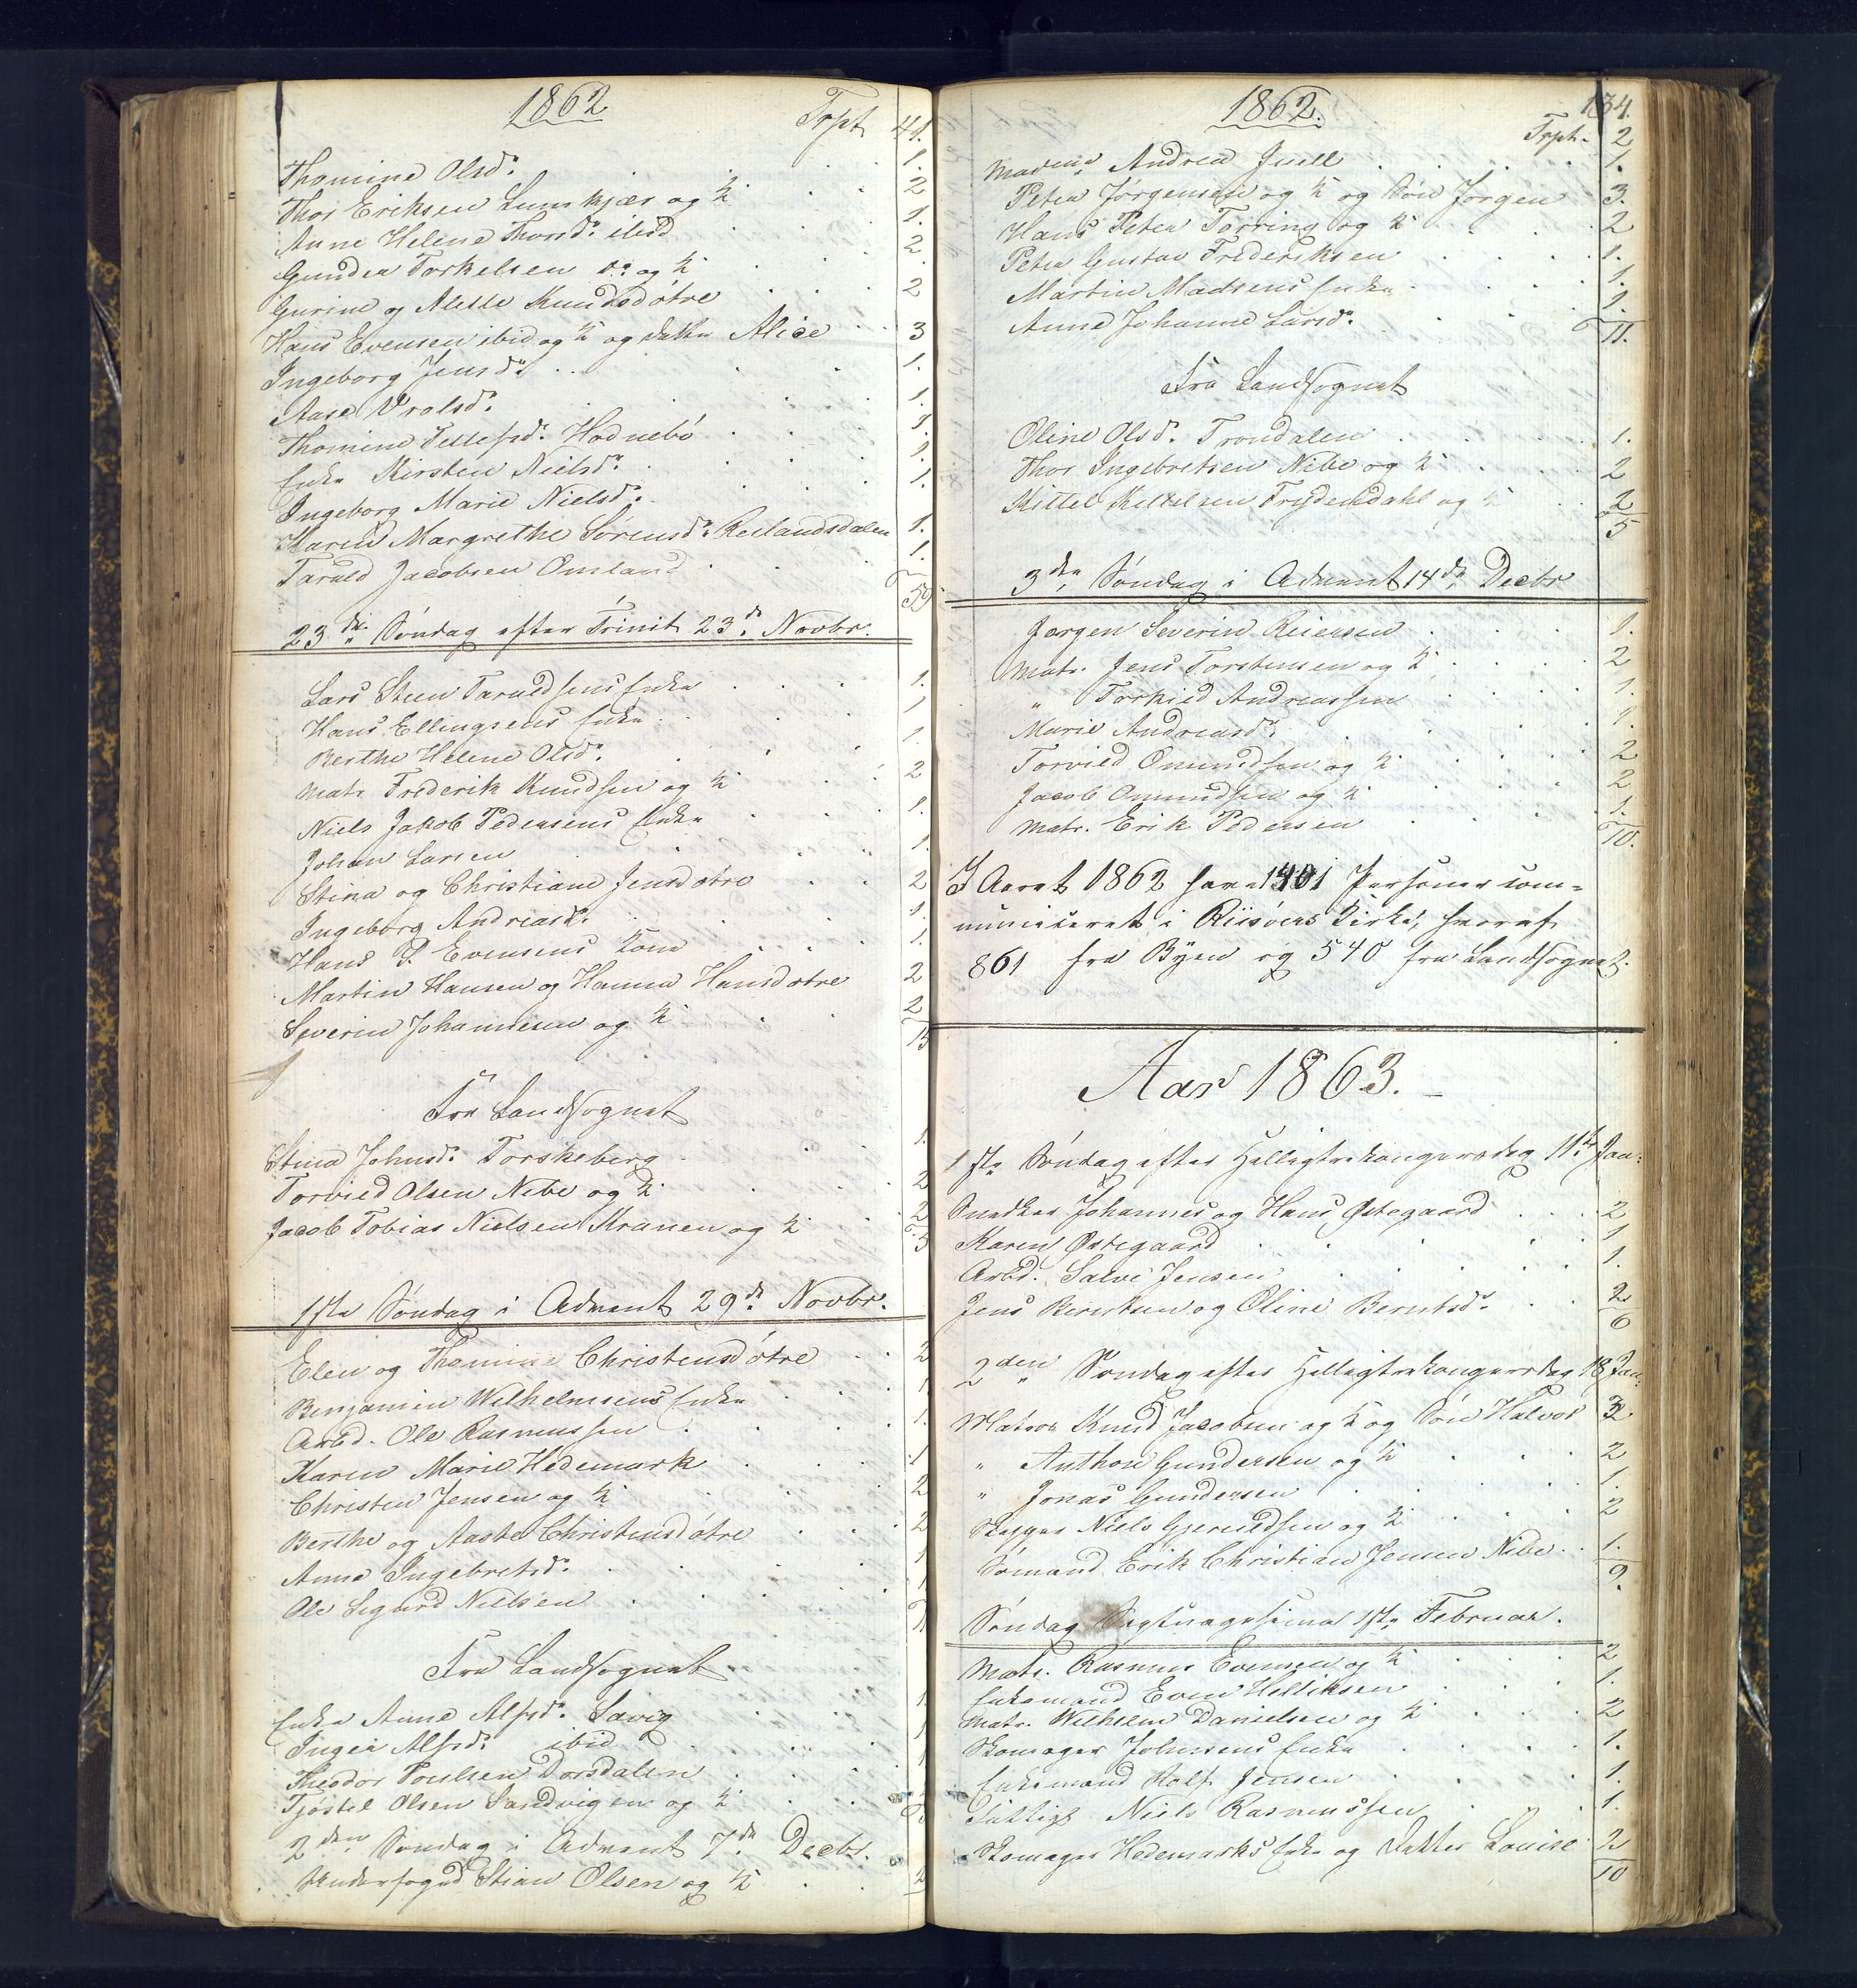 1862
Trspt 41.
Thomine Olsdr. 1.
Thor Eriksen Lumskjær og K. 2
Anne Helene Thorsdr. ibid 1.
Gunder Torkelsen do og K. 2.
Gurine og Aleth Knudsdøtre 2
Hans Evensen ibid og K og Datter Alice 3
Ingeborg Jensdr. 1.
Aase Vrolsd. 1.
Thomine Tellefsd. Hodnebö 1.
Enke Kirsten Nielsdr. 1.
Ingeborg Marie Nielsd. 1.
Karen Margrethe Sørensdr. Reilandsdalen 1.
Tarald Jacobsen Omland 1.
59
23de Søndag efter Trinit. 23de Novbr.
Lars Steen Taraldsens Enke 1.
Hans Ellingsens Enke 1
Berthe Helene Olsdr. 1.
Matr. Frederik Knudsen og K 2
Niels Jakob Pedersens Enke 1.
Johan Larsen 1.
Stina og Christiane Jensdøtre 2
Ingeborg Andreasd. 1.
Hans P. Evensens Kone 1.
Martin Hansen og Hanna Hansdøtre 2
Severin Johannesen og K 2
15
Fra Landsognet
Stina Johnsd. Torskeberg 1.
Torvied Olsen Nibe og K. 2
Jacob Tobias Nielsen Kranen og K 2
5
1ste Søndag i Advent 29de Novbr.
Elen og Thomine Christensdøtre 2
Benjamin Wilhelmsens Enke 1.
Arbd. Ole Rasmussen 1.
Karen Marie Hedemark 1
Christen Jensen og K 2
Berthe og Aaste Christensdøtre 2
Anne Ingebretsd. 1
Ole Sigurd Nielsen 1
11
Fra Landsognet
Enke Anne Alfsd. Savig 1.
Inger Alfsd. ibid 1
Theodor Poulsen Dorsdalen 1
Tjöstel Olsen Sandvigen og K 2
5
2den Søndag i Advent 7de Decbr.
Underfoged Stian Olsen og K 2
1862.
134.
Trspt. 2
Madme Andrea Juell 1.
Peter Jørgensen og K og Søn Jørgen 3.
Hans Peter Tørring og K 2
Peter Gustav Frederiksen 1.
Martin Madsens Enke 1.
Anne Johanne Larsd. 1.
11.
Fra Landsognet
Oline Olsd. Trondalen 1.
Thor Ingebretsen Nibe og K 2
Kittel Kittelsen Frydendahl og K 2
5
3die Søndag i Advent 14de Decbr
Jørgen Severin Reiersen 1.
Matr. Jens Torstensen og K 2
" Torkild Andreassen 1.
Marie Andreasd. 1.
Torvied Omundsen og K 2
Jacob Omundsen og K 2
Matr. Erik Pedersen 1.
10.
I Aaret 1862 have 1401 Personer com-
municeret i Riisöers Kirke, hvoraf
861 fra Byen og 540 fra Landsognet.
Aar 1863.
1ste Søndag efter Helligtrekongersdag 11te Jan:
Snedker Johannes og Hans Østegaard 2
Karen Østegaard 1
Arbd. Salve Jensen 1.
Jens Berntsen og Oline Berntsd. 2
6
2den Søndag efter Helligtrekongersdag 18 Jan:
Matros Knud Jacobsen og K og Søn Halvor 3
" Anthon Gundersen og K 2
" Jonas Gundersen 1.
Skipper Niels Gjeruldsen og K 2
Sømand Erik Christian Jensen Nibe 1.
9.
Søndag Septuagesima 1ste Februar.
Matr. Rasmus Evensen og K 2
Enkemand Even Helliksen 1.
Matr. Wilhelm Danielsen og K 2
Skomager Johnsens Enke 1.
Enkemand Rolf Jensen 1.
Fattigl. Niels Rasmussen 1.
Skomager Hedemarks Enke og Datter Louise 2
10